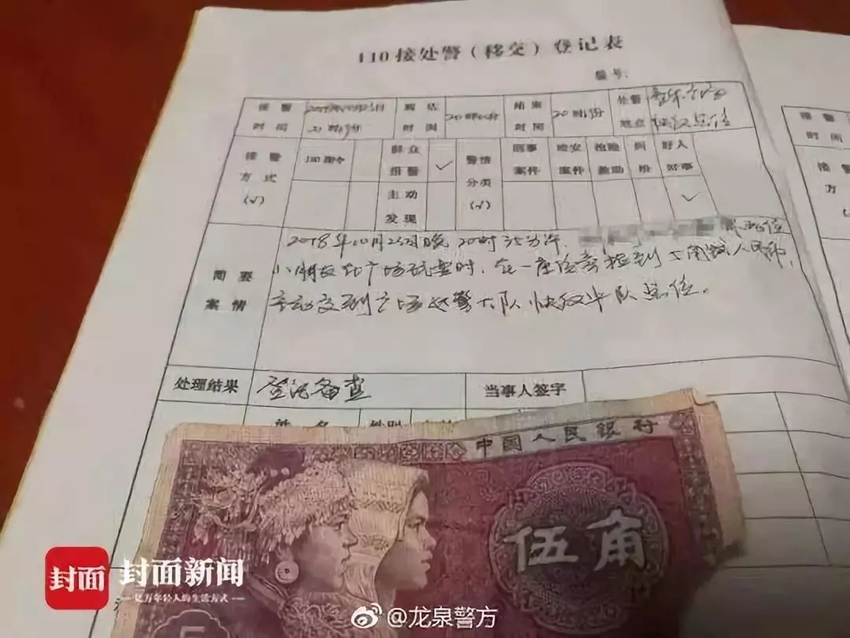 110接处警（移交）登记表
编号：
接警
时间
到达
时间
20时40分
结束
时间
20时45分
处警
地点
接警
方式
（√）
110指令
群众
报警
√
主动
发现
警情
分类
（√）
刑事
案件
治安
案件
抢险
救助
纠
纷
好人
好事
√
简要
案情
2018年10月23日晚20时35分许，
小朋友在广场玩耍时，在一座位旁捡到5角钱人民币，
主动交到广场巡警大队快反中队点位。
处理结果
登记备查
当事人签字
姓名
性别
接警
时间
接警
方
中国人民银行
伍角
5
封面
封面新闻
亿万年轻人的生活方式
@龙泉警方